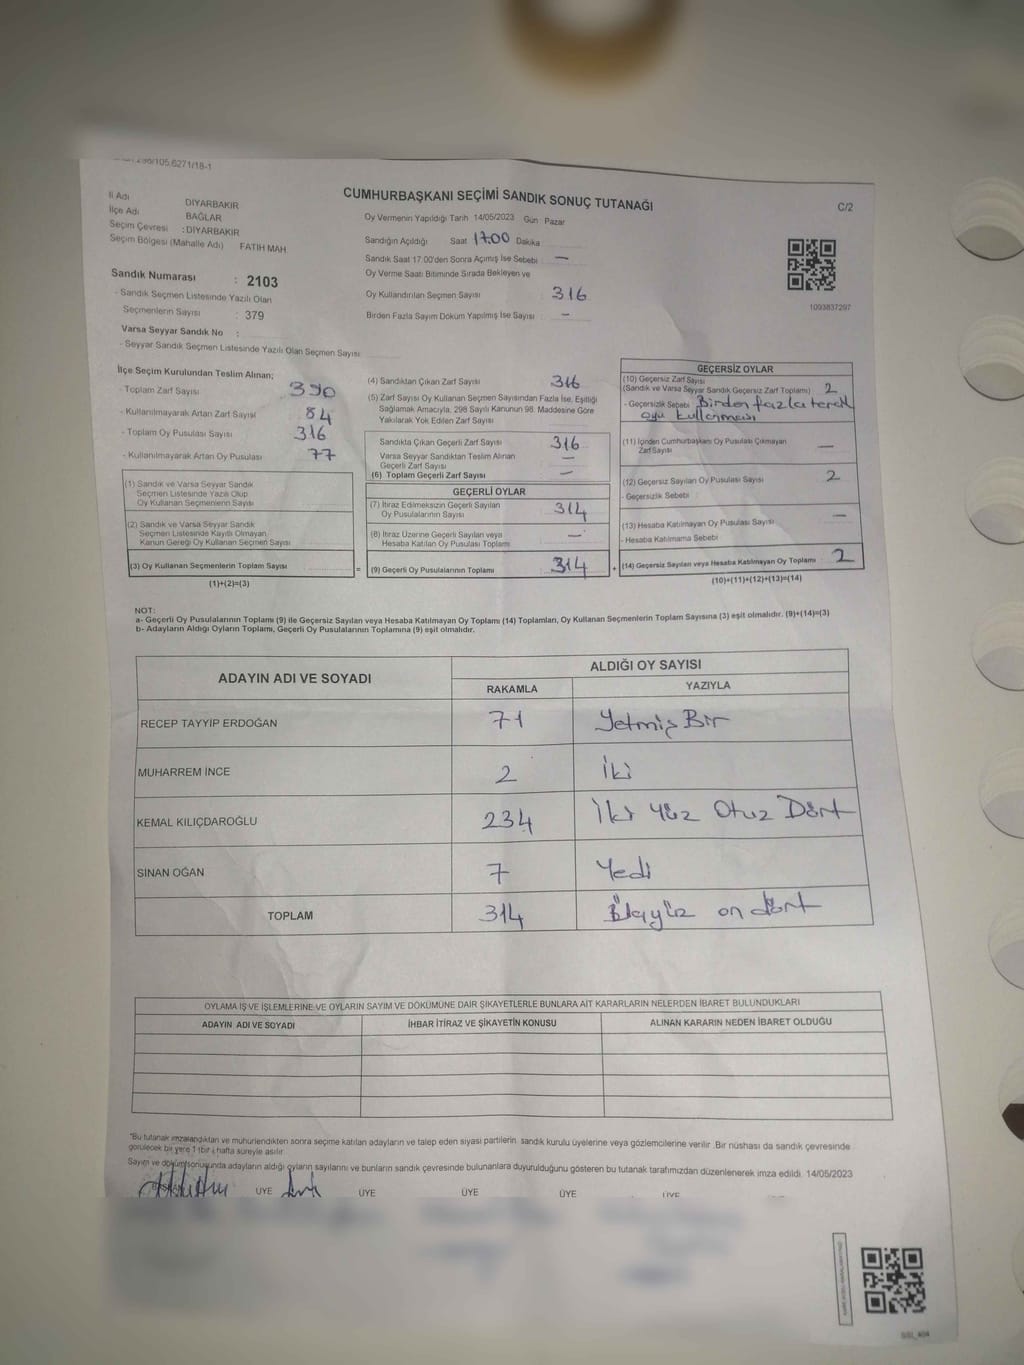 İl Adı DİYARBAKIR
İlçe Adı BAĞLAR
Seçim Çevresi : DİYARBAKIR
Seçim Bölgesi (Mahalle Adı) FATİH MAH
Sandık Numarası : 2103
- Sandık Seçmen Listesinde Yazılı Olan
Seçmenlerin Sayısı : 379
Varsa Seyyar Sandık No :
- Seyyar Sandık Seçmen Listesinde Yazılı Olan Seçmen Sayısı
CUMHURBAŞKANI SEÇİMİ SANDIK SONUÇ TUTANAĞI
C/2
Oy Vermenin Yapıldığı Tarih 14/05/2023 Gün : Pazar
Sandığın Açıldığı Saat 17.00 Dakika
Sandık Saat 17.00'den Sonra Açımış İse Sebebi : —
Oy Verme Saati Bitiminde Sırada Bekleyen ve
Oy Kullandırılan Seçmen Sayısı : 316
Birden Fazla Sayım Döküm Yapılmış İse Sayısı : -
1093837297
İlçe Seçim Kurulundan Teslim Alınan;
- Toplam Zarf Sayısı 390
- Kullanılmayarak Artan Zarf Sayısı 84
- Toplam Oy Pusulası Sayısı 316
- Kullanılmayarak Artan Oy Pusulası 77
(1) Sandık ve Varsa Seyyar Sandık
Seçmen Listesinde Yazılı Olup
Oy Kullanan Seçmenlerin Sayısı
(2) Sandık ve Varsa Seyyar Sandık
Seçmen Listesinde Kayıtlı Olmayan
Kanun Gereği Oy Kullanan Seçmen Sayısı
(3) Oy Kullanan Seçmenlerin Toplam Sayısı =
(1)+(2)=(3)
(4) Sandıktan Çıkan Zarf Sayısı 316
(5) Zarf Sayısı Oy Kullanan Seçmen Sayısından Fazla İse, Eşitliği
Sağlamak Amacıyla, 298 Sayılı Kanunun 98. Maddesine Göre
Yakılarak Yok Edilen Zarf Sayısı
Sandıkta Çıkan Geçerli Zarf Sayısı 316
Varsa Seyyar Sandıktan Teslim Alınan
Geçerli Zarf Sayısı —
(6) Toplam Geçerli Zarf Sayısı —
GEÇERLİ OYLAR
(7) İtiraz Edilmeksizin Geçerli Sayılan
Oy Pusulalarının Sayısı 314
(8) İtiraz Üzerine Geçerli Sayılan veya
Hesaba Katılan Oy Pusulası Toplamı —
(9) Geçerli Oy Pusulalarının Toplamı 314 +
GEÇERSİZ OYLAR
(10) Geçersiz Zarf Sayısı
(Sandık ve Varsa Seyyar Sandık Geçersiz Zarf Toplamı) 2
- Geçersizlik Sebebi Birden fazla
oyu kullanması
(11) İçinden Cumhurbaşkanı Oy Pusulası Çıkmayan
Zarf Sayısı —
(12) Geçersiz Sayılan Oy Pusulası Sayısı 2
- Geçersizlik Sebebi
(13) Hesaba Katılmayan Oy Pusulası Sayısı —
- Hesaba Katılmama Sebebi
(14) Geçersiz Sayılan veya Hesaba Katılmayan Oy Toplamı 2
(10)+(11)+(12)+(13)=(14)
NOT:
a- Geçerli Oy Pusulalarının Toplamı (9) ile Geçersiz Sayılan veya Hesaba Katılmayan Oy Toplamı (14) Toplamları, Oy Kullanan Seçmenlerin Toplam Sayısına (3) eşit olmalıdır. (9)+(14)=(3)
b- Adayların Aldığı Oyların Toplamı, Geçerli Oy Pusulalarının Toplamına (9) eşit olmalıdır.
ADAYIN ADI VE SOYADI ALDIĞI OY SAYISI
RAKAMLA YAZIYLA
RECEP TAYYİP ERDOĞAN 71 Yetmiş Bir
MUHARREM İNCE 2 İki
KEMAL KILIÇDAROĞLU 234 İki Yüz Otuz Dört
SİNAN OĞAN 7 Yedi
TOPLAM 314 on dört
OYLAMA İŞ VE İŞLEMLERİNE VE OYLARIN SAYIM VE DÖKÜMÜNE DAİR ŞİKAYETLERLE BUNLARA AİT KARARLARIN NELERDEN İBARET BULUNDUKLARI
ADAYIN ADI VE SOYADI İHBAR İTİRAZ VE ŞİKAYETİN KONUSU ALINAN KARARIN NEDEN İBARET OLDUĞU
"Bu tutanak imzalandıktan ve mühürlendikten sonra seçime katılan adayların ve talep eden siyasi partilerin sandık kurulu üyelerine veya gözlemcilerine verilir. Bir nüshası da sandık çevresinde
görülecek bir yere 1 (bir) hafta süreyle asılır.
Sayım ve döküm sonunda adayların aldığı oyların sayılarını ve bunların sandık çevresinde bulunanlara duyurulduğunu gösteren bu tutanak tarafımızdan düzenlenerek imza edildi. 14/05/2023
ÜYE ÜYE ÜYE ÜYE ÜYE